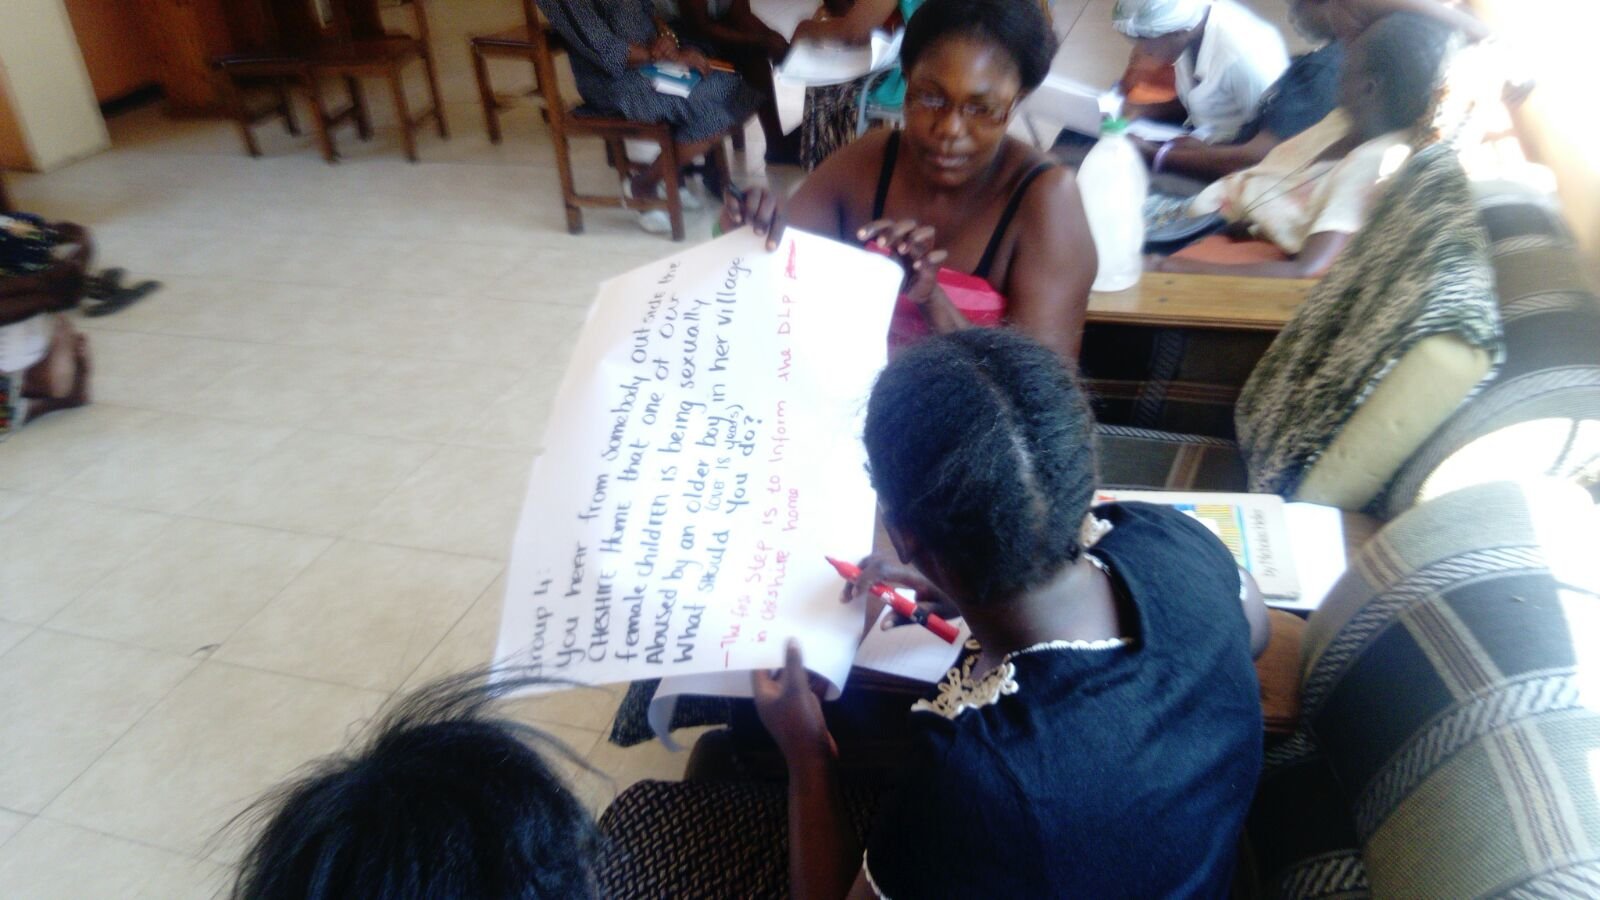 Group 4:
You hear from Somebody outside the
CHESHIRE HOME that one of our
female children is being sexually
Abused by an older boy in her village
(over 18 years)
What should you do?
– The first step is to Inform the DLP
in cheshire home
by Nicholas Heller